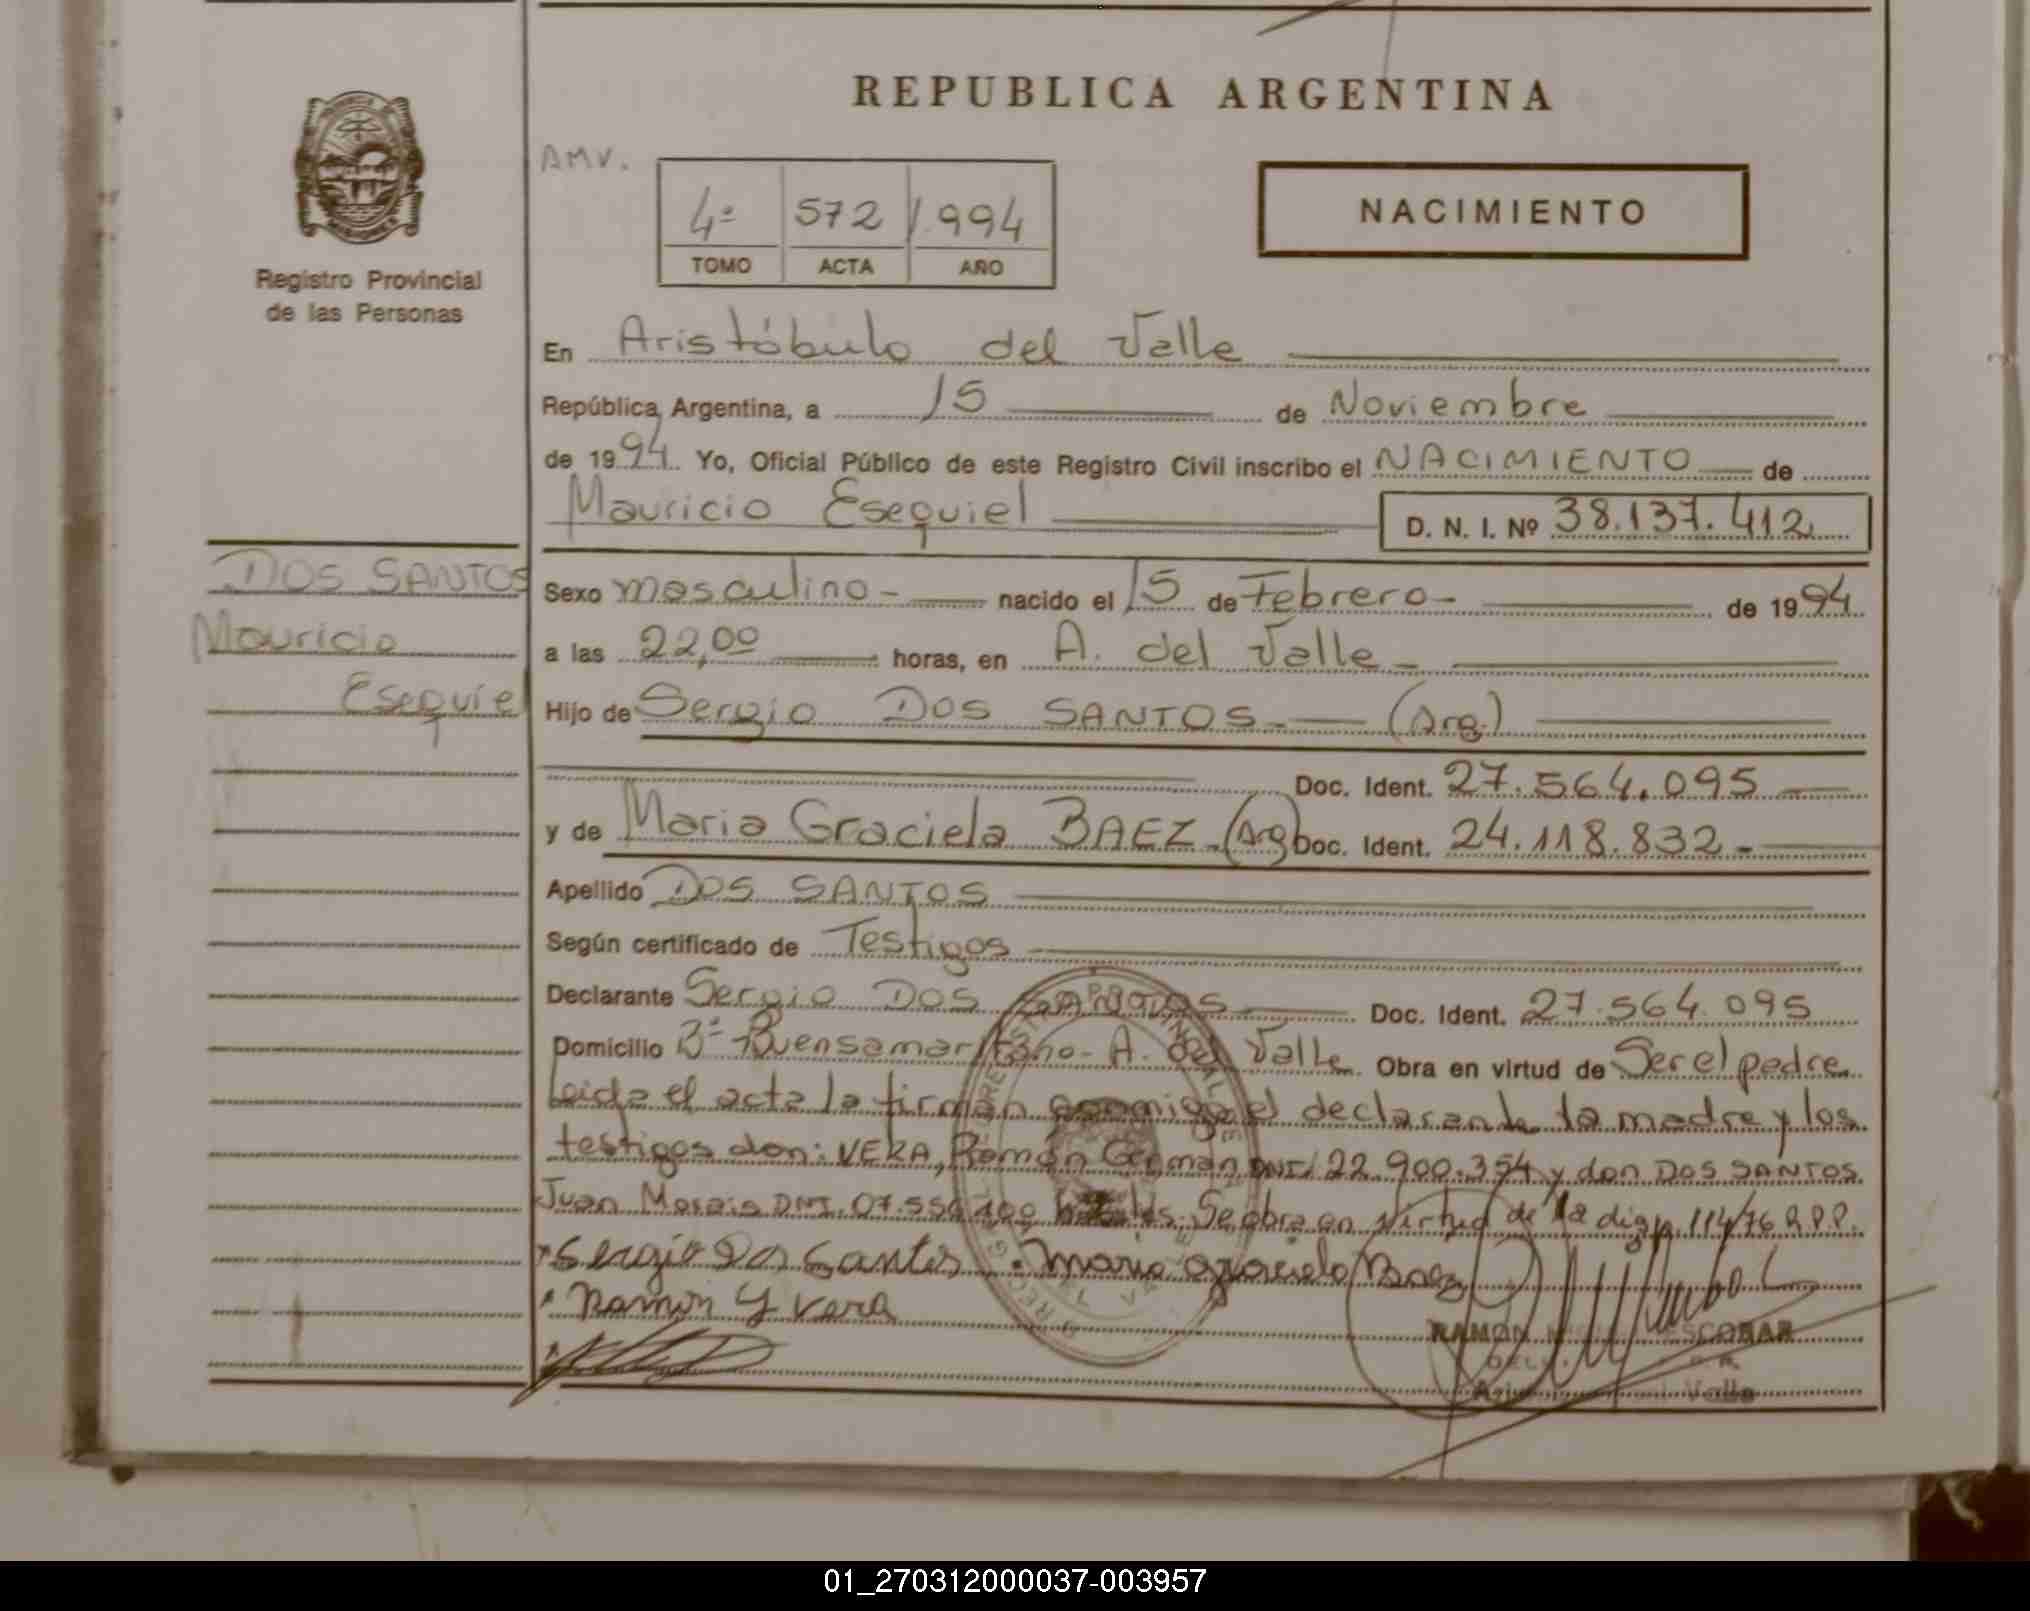 REPUBLICA ARGENTINA
AMV.
4º 572 1.994
TOMO ACTA AÑO
NACIMIENTO
Registro Provincial
de las Personas
En Aristóbulo del Valle
República Argentina, a 15 de Noviembre
de 1994. Yo, Oficial Público de este Registro Civil inscribo el NACIMIENTO de
Mauricio Esequiel D. N. I. Nº 38.137.412
DOS SANTOS
Mauricio
Esequiel
Sexo masculino - nacido el 15 de Febrero - de 1994
a las 22,00 horas, en A. del Valle -
Hijo de Sergio DOS SANTOS - (Arg.)
Doc. Ident. 27.564.095
y de Maria Graciela BAEZ - (Arg) Doc. Ident. 24.118.832 -
Apellido DOS SANTOS
Según certificado de Testigos
Declarante Sergio DOS SANTOS Doc. Ident. 27.564.095
Domicilio Bº Buensamaritano - A. del Valle. Obra en virtud de Ser el padre
Leida el acta la firman conmigo el declarante la madre y los
testigos don: VERA, Román Germán DNI 22.900.354 y don DOS SANTOS
Juan Morais DNI. 07. Se obra en virtud de la 114/76 R.P.P.
Sergio Dos Santos Maria Graciela Baez
Ramon G Vera
RAMON ESCOBAR
Valle
01_270312000037-003957